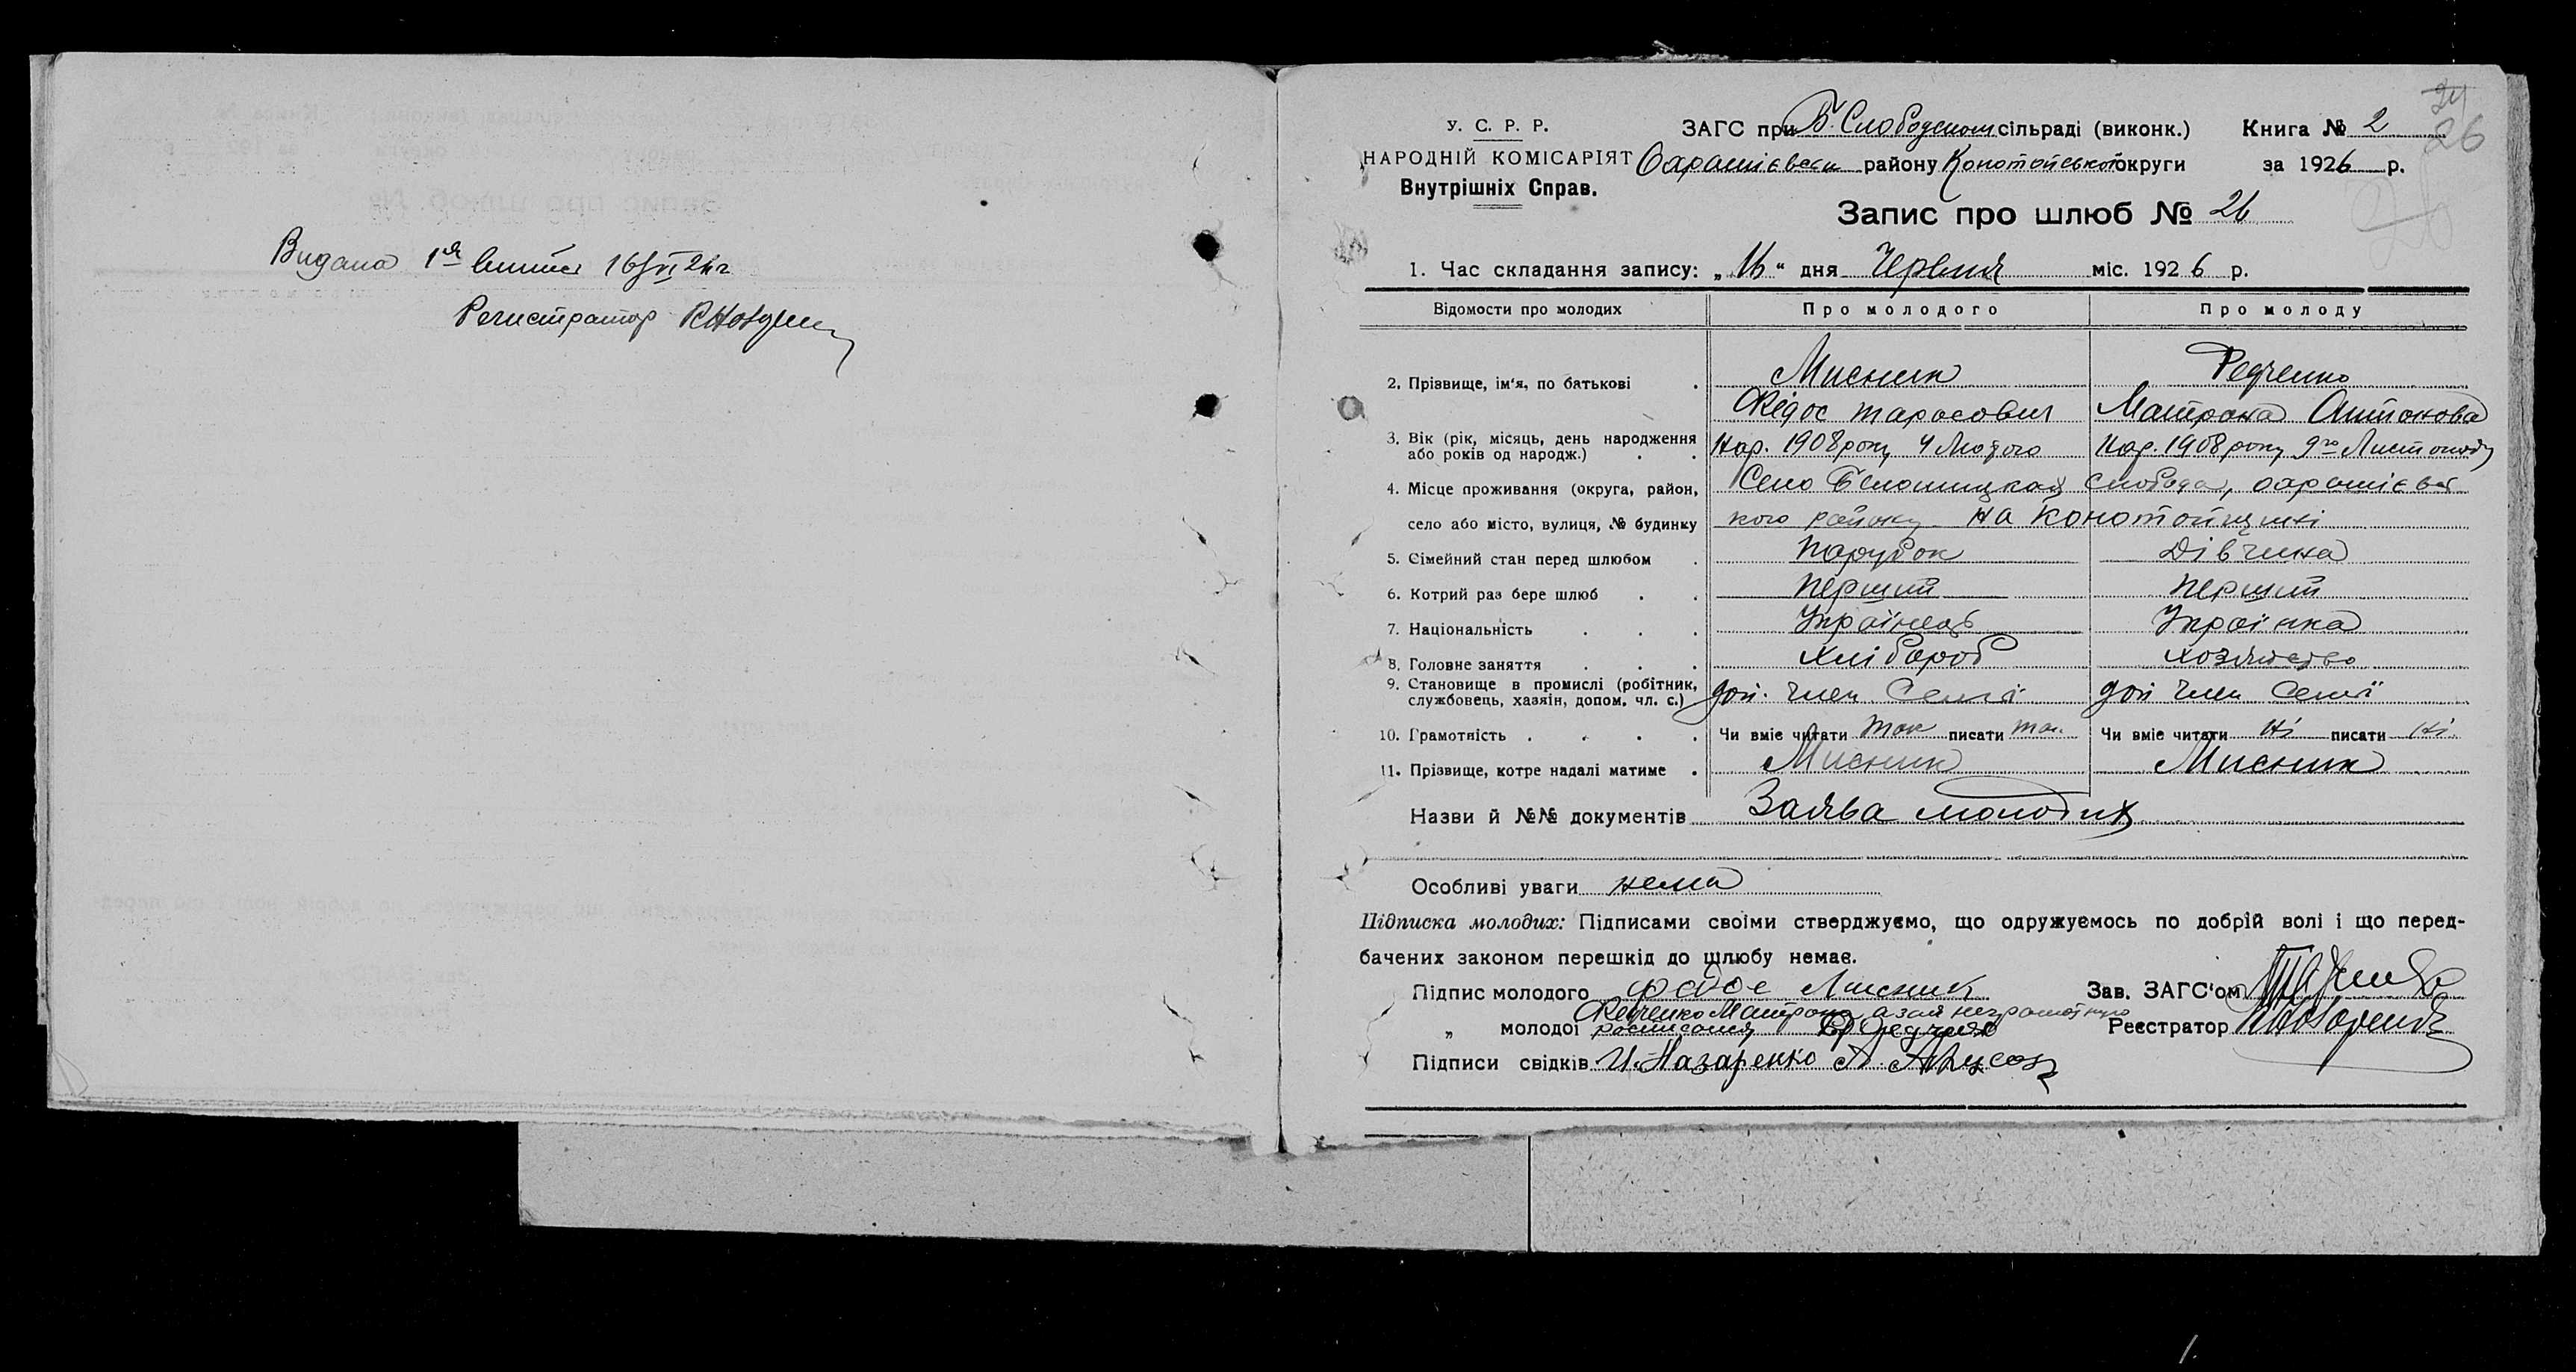 Видана 1ᵃ виписъ 16/VI 26 г
Регистратор
У. С. Р. Р.
НАРОДНІЙ КОМІСАРІЯТ
Внутрішніх Справ.
ЗАГС при Б. Слободском сільраді (виконк.)
району Конотопської округи
Книга № 2
за 1926 р.
24
26
Запис про шлюб № 26
1. Час складання запису: „16“ дня Червня міс. 1926 р.
Відомости про молодих Про молодого Про молоду
2. Прізвище, ім'я, по батькові . Мисник Редченко
Федос Тарасович Матрона Антонова
3. Вік (рік, місяць, день народження
або років од народж.) . . Нар. 1908 року 4 Лютого Нар. 1908 року 9го Листопаду
4. Місце проживання (округа, район, Село
село або місто, вулиця, № будинку кого району на Конотопщині
5. Сімейний стан перед шлюбом . Парубок Дівчина
6. Котрий раз бере шлюб . . Перший Перший
7. Національність . . . Українець Українка
8. Головне заняття . . . Хлібороб хозяйство
9. Становище в промислі (робітник,
службовець, хазяін, допом. чл. с.) доп. член Семї доп член Семїї
10. Грамотність . . . . Чи вміє читати так писати так. Чи вміє читати Ні писати Ні.
11. Прізвище, котре надалі матиме . Мисник Мисник
Назви й №№ документів Заява молодих
Особливі уваги нема
Підписка молодих: Підписами своіми стверджуємо, що одружуємось по добрій волі і що перед-
бачених законом перешкід до шлюбу немає.
Підпис молодого Федос Мисник Зав. ЗАГС'ом
Редченко Матрона а за неї неграмотную
„ молодої росписался Реєстратор
Підписи свідків И. Назаренко А.